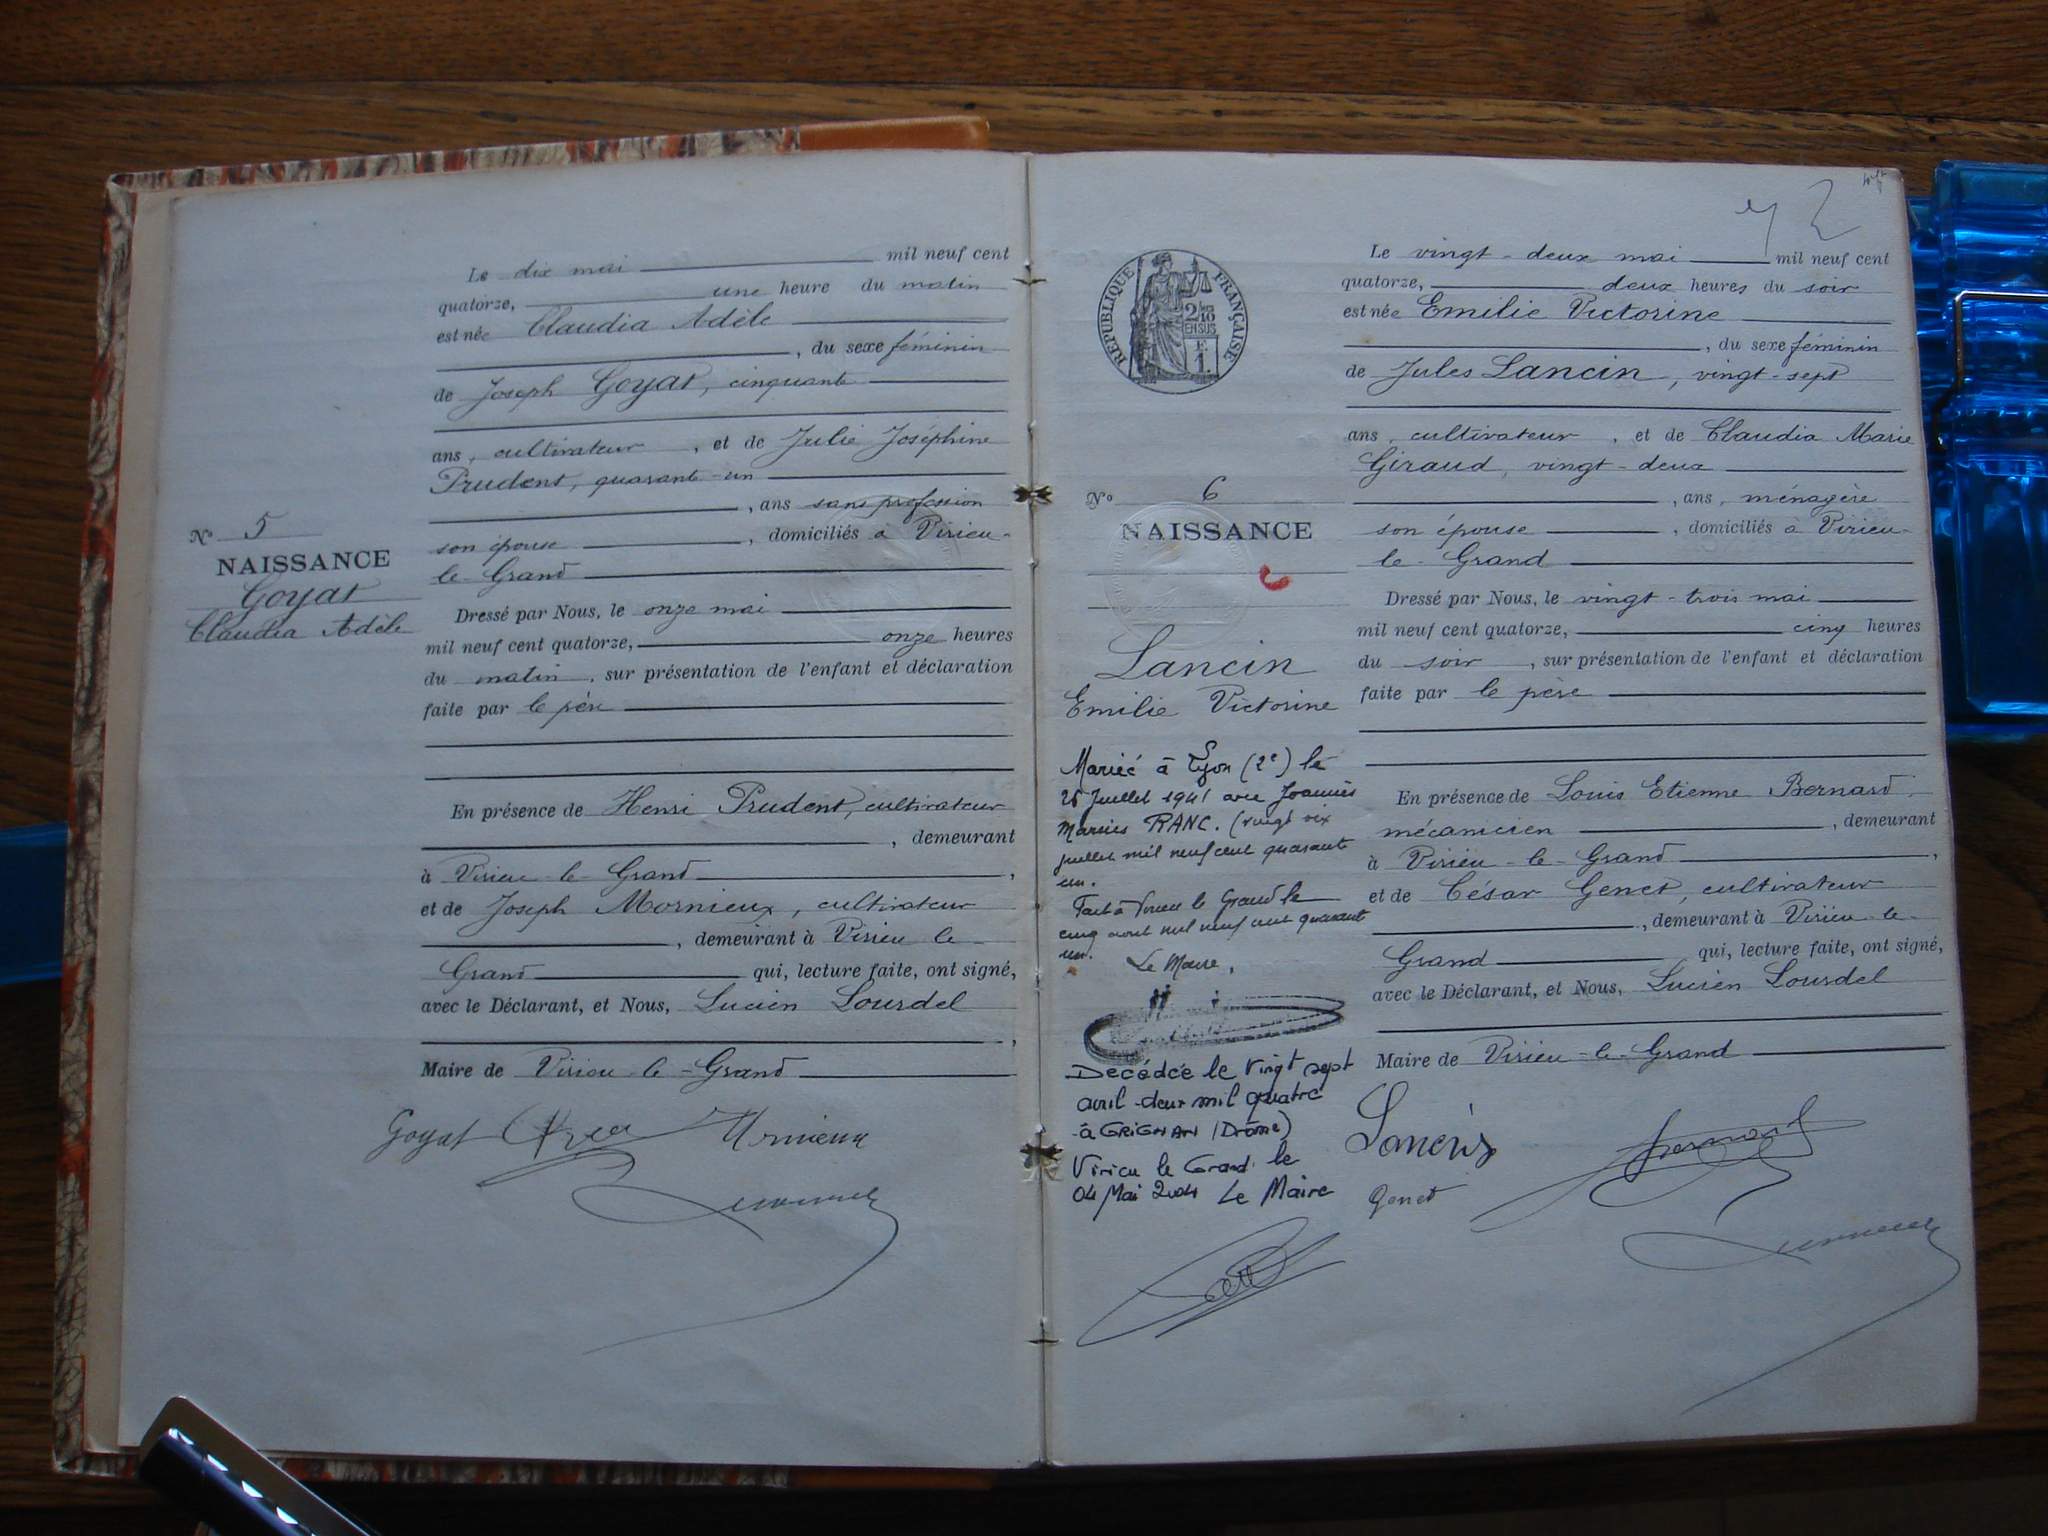 Le dix mai mil neuf cent
quatorze, une heure du matin
est née Claudia Adèle
, du sexe féminin
de Joseph Goyat, cinquante
ans, cultivateur, et de Julie Joséphine
Prudent, quarante-un
, ans sans profession
son épouse, domiciliés à Virieu-
le-Grand
N° 5
NAISSANCE
Goyat
Claudia Adèle
Dressé par Nous, le onze mai
mil neuf cent quatorze, onze heures
du matin, sur présentation de l'enfant et déclaration
faite par le père
En présence de Henri Prudent, cultivateur
, demeurant
à Virieu-le-Grand,
et de Joseph Mornieux, cultivateur
, demeurant à Virieu le-
Grand qui, lecture faite, ont signé,
avec le Déclarant, et Nous, Lucien Lourdel
,
Maire de Virieu-le-Grand
Goyat Mornieux
RÉPUBLIQUE FRANÇAISE
2/10
EN SUS
F.
1.
Le vingt-deux mai mil neuf cent
quatorze, deux heures du soir
est née Emilie Victorine
, du sexe féminin
de Jules Lancin, vingt-sept
ans, cultivateur, et de Claudia Marie
Giraud, vingt-deux
, ans, ménagère
son épouse, domiciliés à Virieu-
le-Grand
N° 6
NAISSANCE
Lancin
Emilie Victorine
Dressé par Nous, le vingt-trois mai
mil neuf cent quatorze, cinq heures
du soir, sur présentation de l'enfant et déclaration
faite par le père
En présence de Louis Etienne Bernard,
mécanicien, demeurant
à Virieu-le-Grand,
et de César Genet, cultivateur
, demeurant à Virieu-le-
Grand qui, lecture faite, ont signé,
avec le Déclarant, et Nous, Lucien Lourdel
Maire de Virieu-le-Grand
Mariée à Lyon (2e) le
26 Juillet 1941 avec Joannès
Marius RANC. (vingt six
juillet mil neuf cent quarante
un.
Fait à Virieu le Grand le
cinq août mil neuf cent quarante
un.
Le Maire,
Décédée le vingt sept
avril deux mil quatre
à GRIGNAN (Drôme)
Virieu le Grand le
04 Mai 2004 Le Maire
Lancin
Bernard
Genet